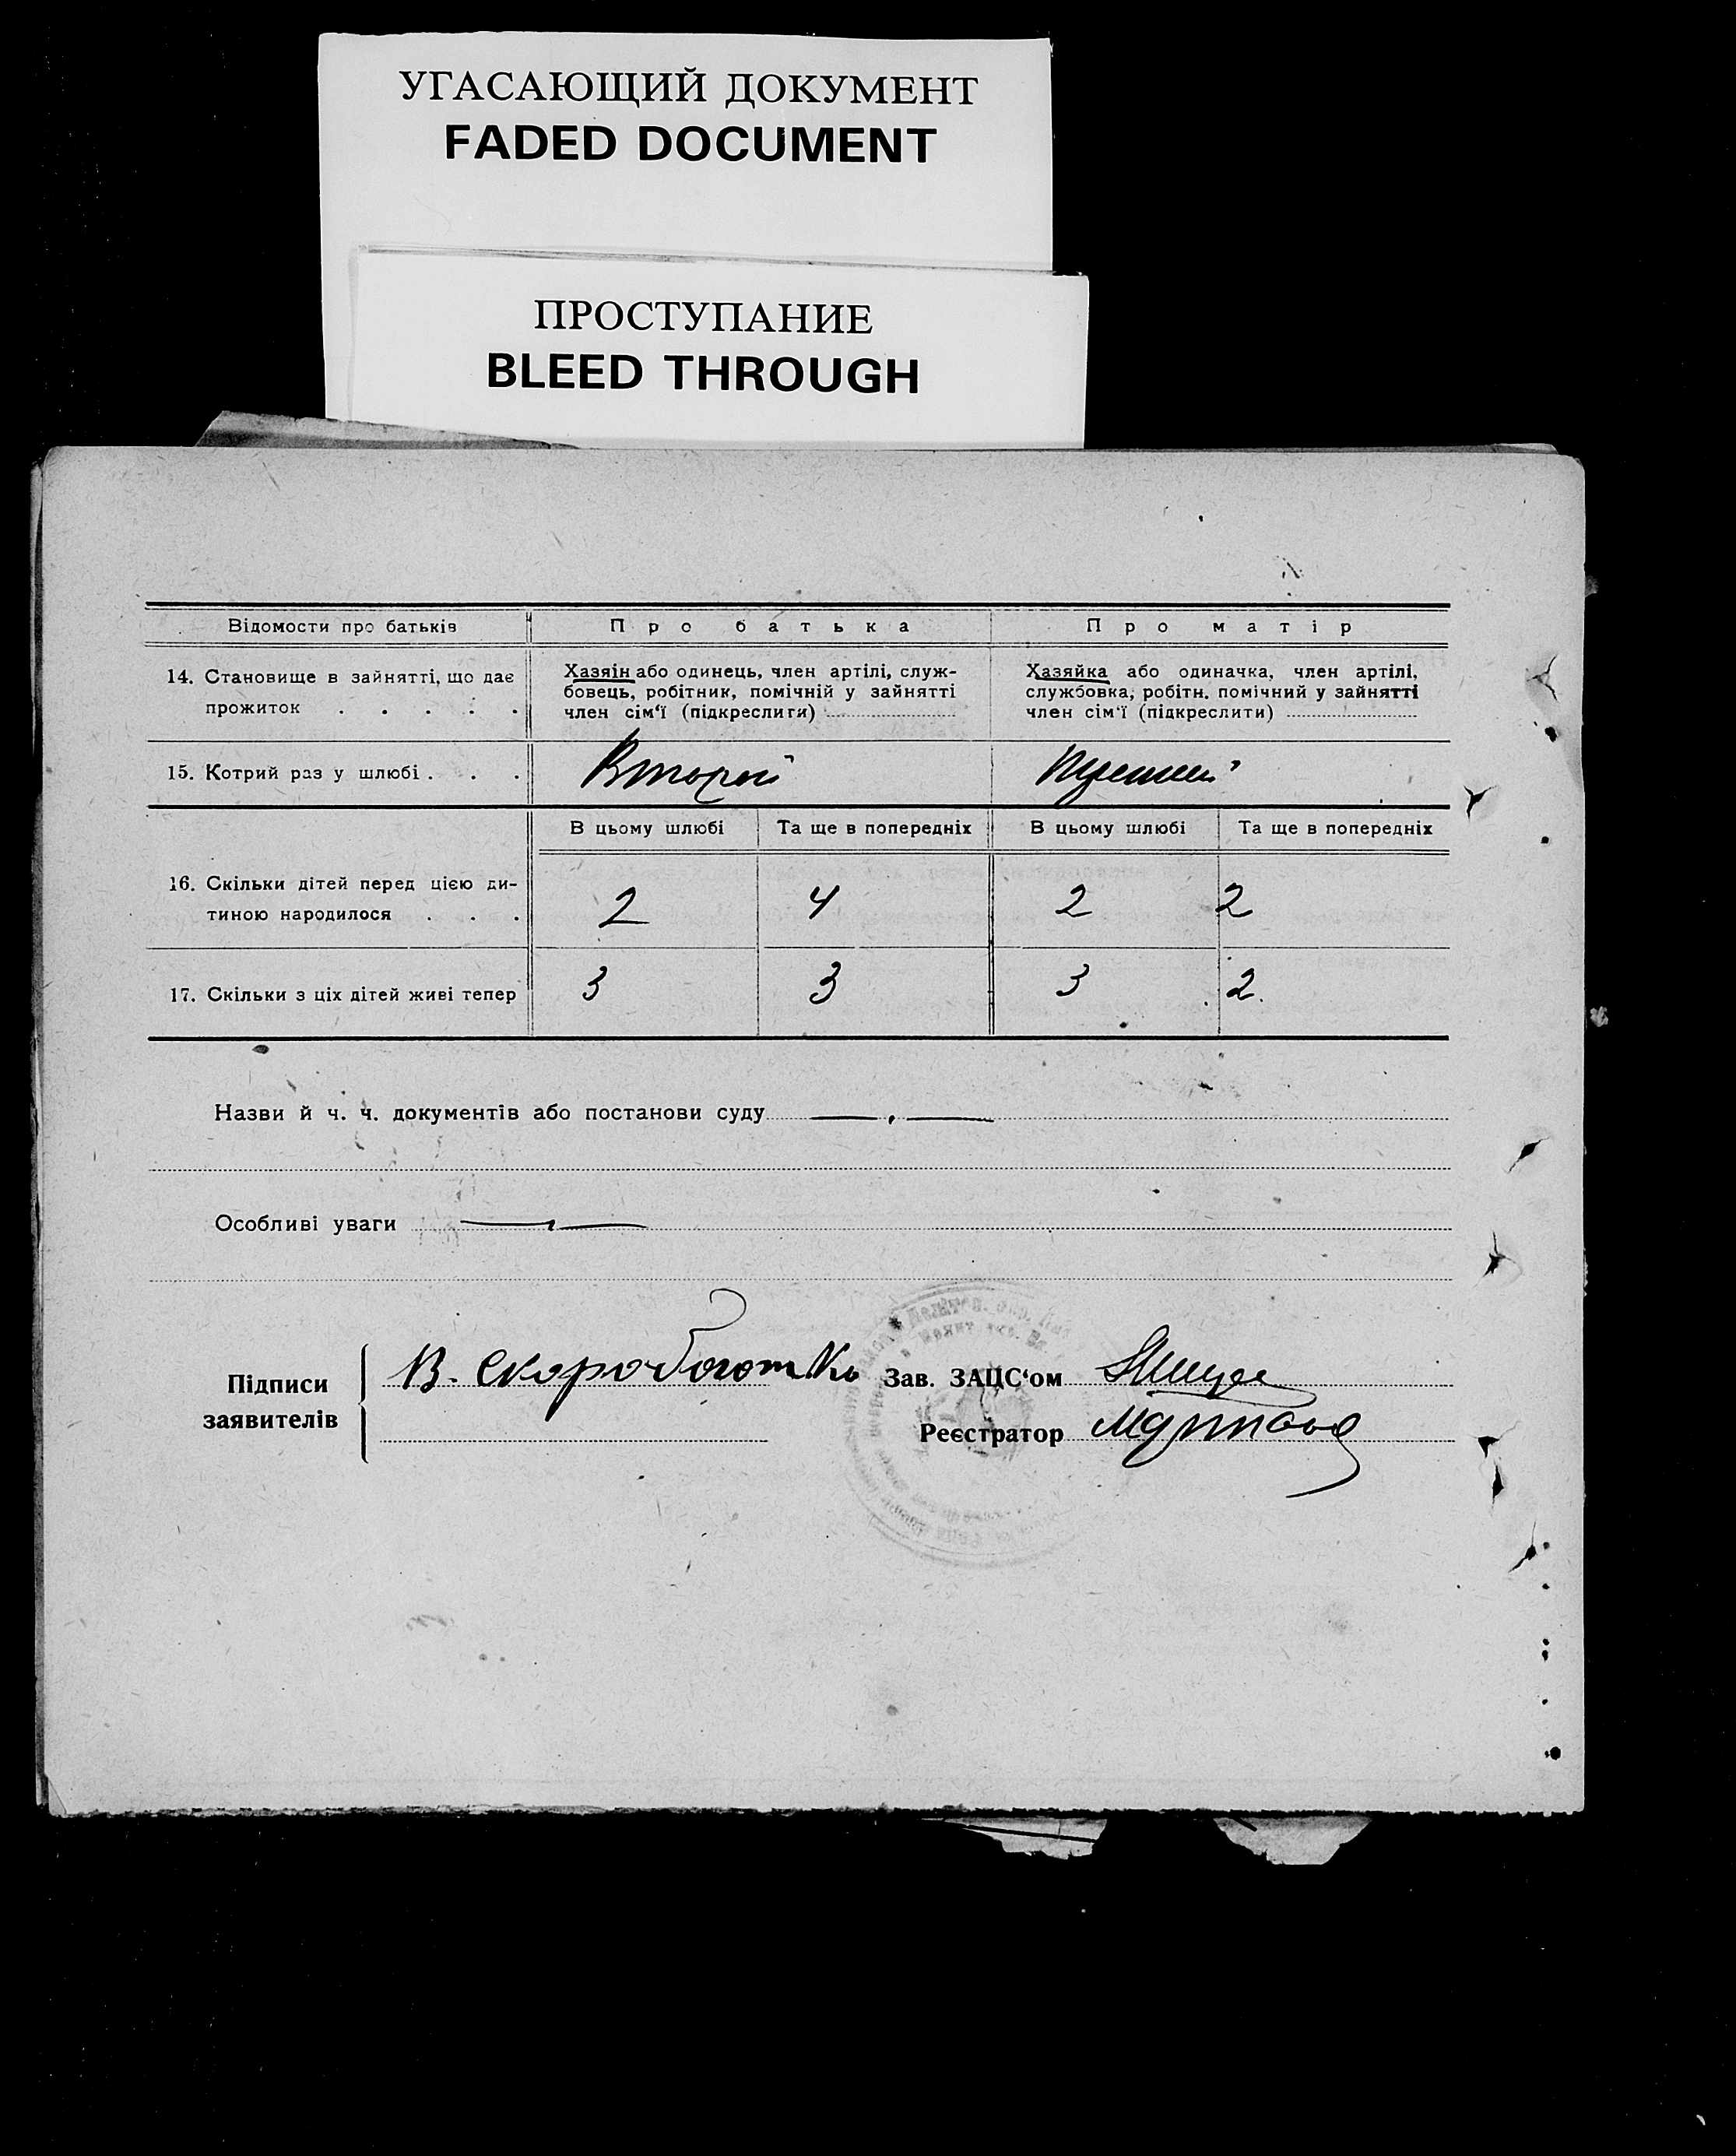 УГАСАЮЩИЙ ДОКУМЕНТ
FADED DOCUMENT
ПРОСТУПАНИЕ
BLEED THROUGH
Відомости про батьків
Про батька
Про матір
14. Становище в зайнятті, що дає
прожиток . . . . .
Хазяін або одинець, член артілі, служ-
бовець, робітник, помічній у зайнятті
член сім'ї (підкреслиги)
Хазяйка або одиначка, член артілі,
службовка, робітн. помічний у зайнятті
член сім'ї (підкреслити)
15. Котрий раз у шлюбі . . .
Второй
В цьому шлюбі
Та ще в попередніх
В цьому шлюбі
Та ще в попередніх
16. Скільки дітей перед цією ди-
тиною народилося . . .
2
4
2
2
17. Скільки з ціх дітей живі тепер
3
3
3
2
Назви й ч. ч. документів або постанови суду
Особливі уваги
Підписи
заявителів
В. Скоробогатько
Зав. ЗАЦС'ом
Реєстратор